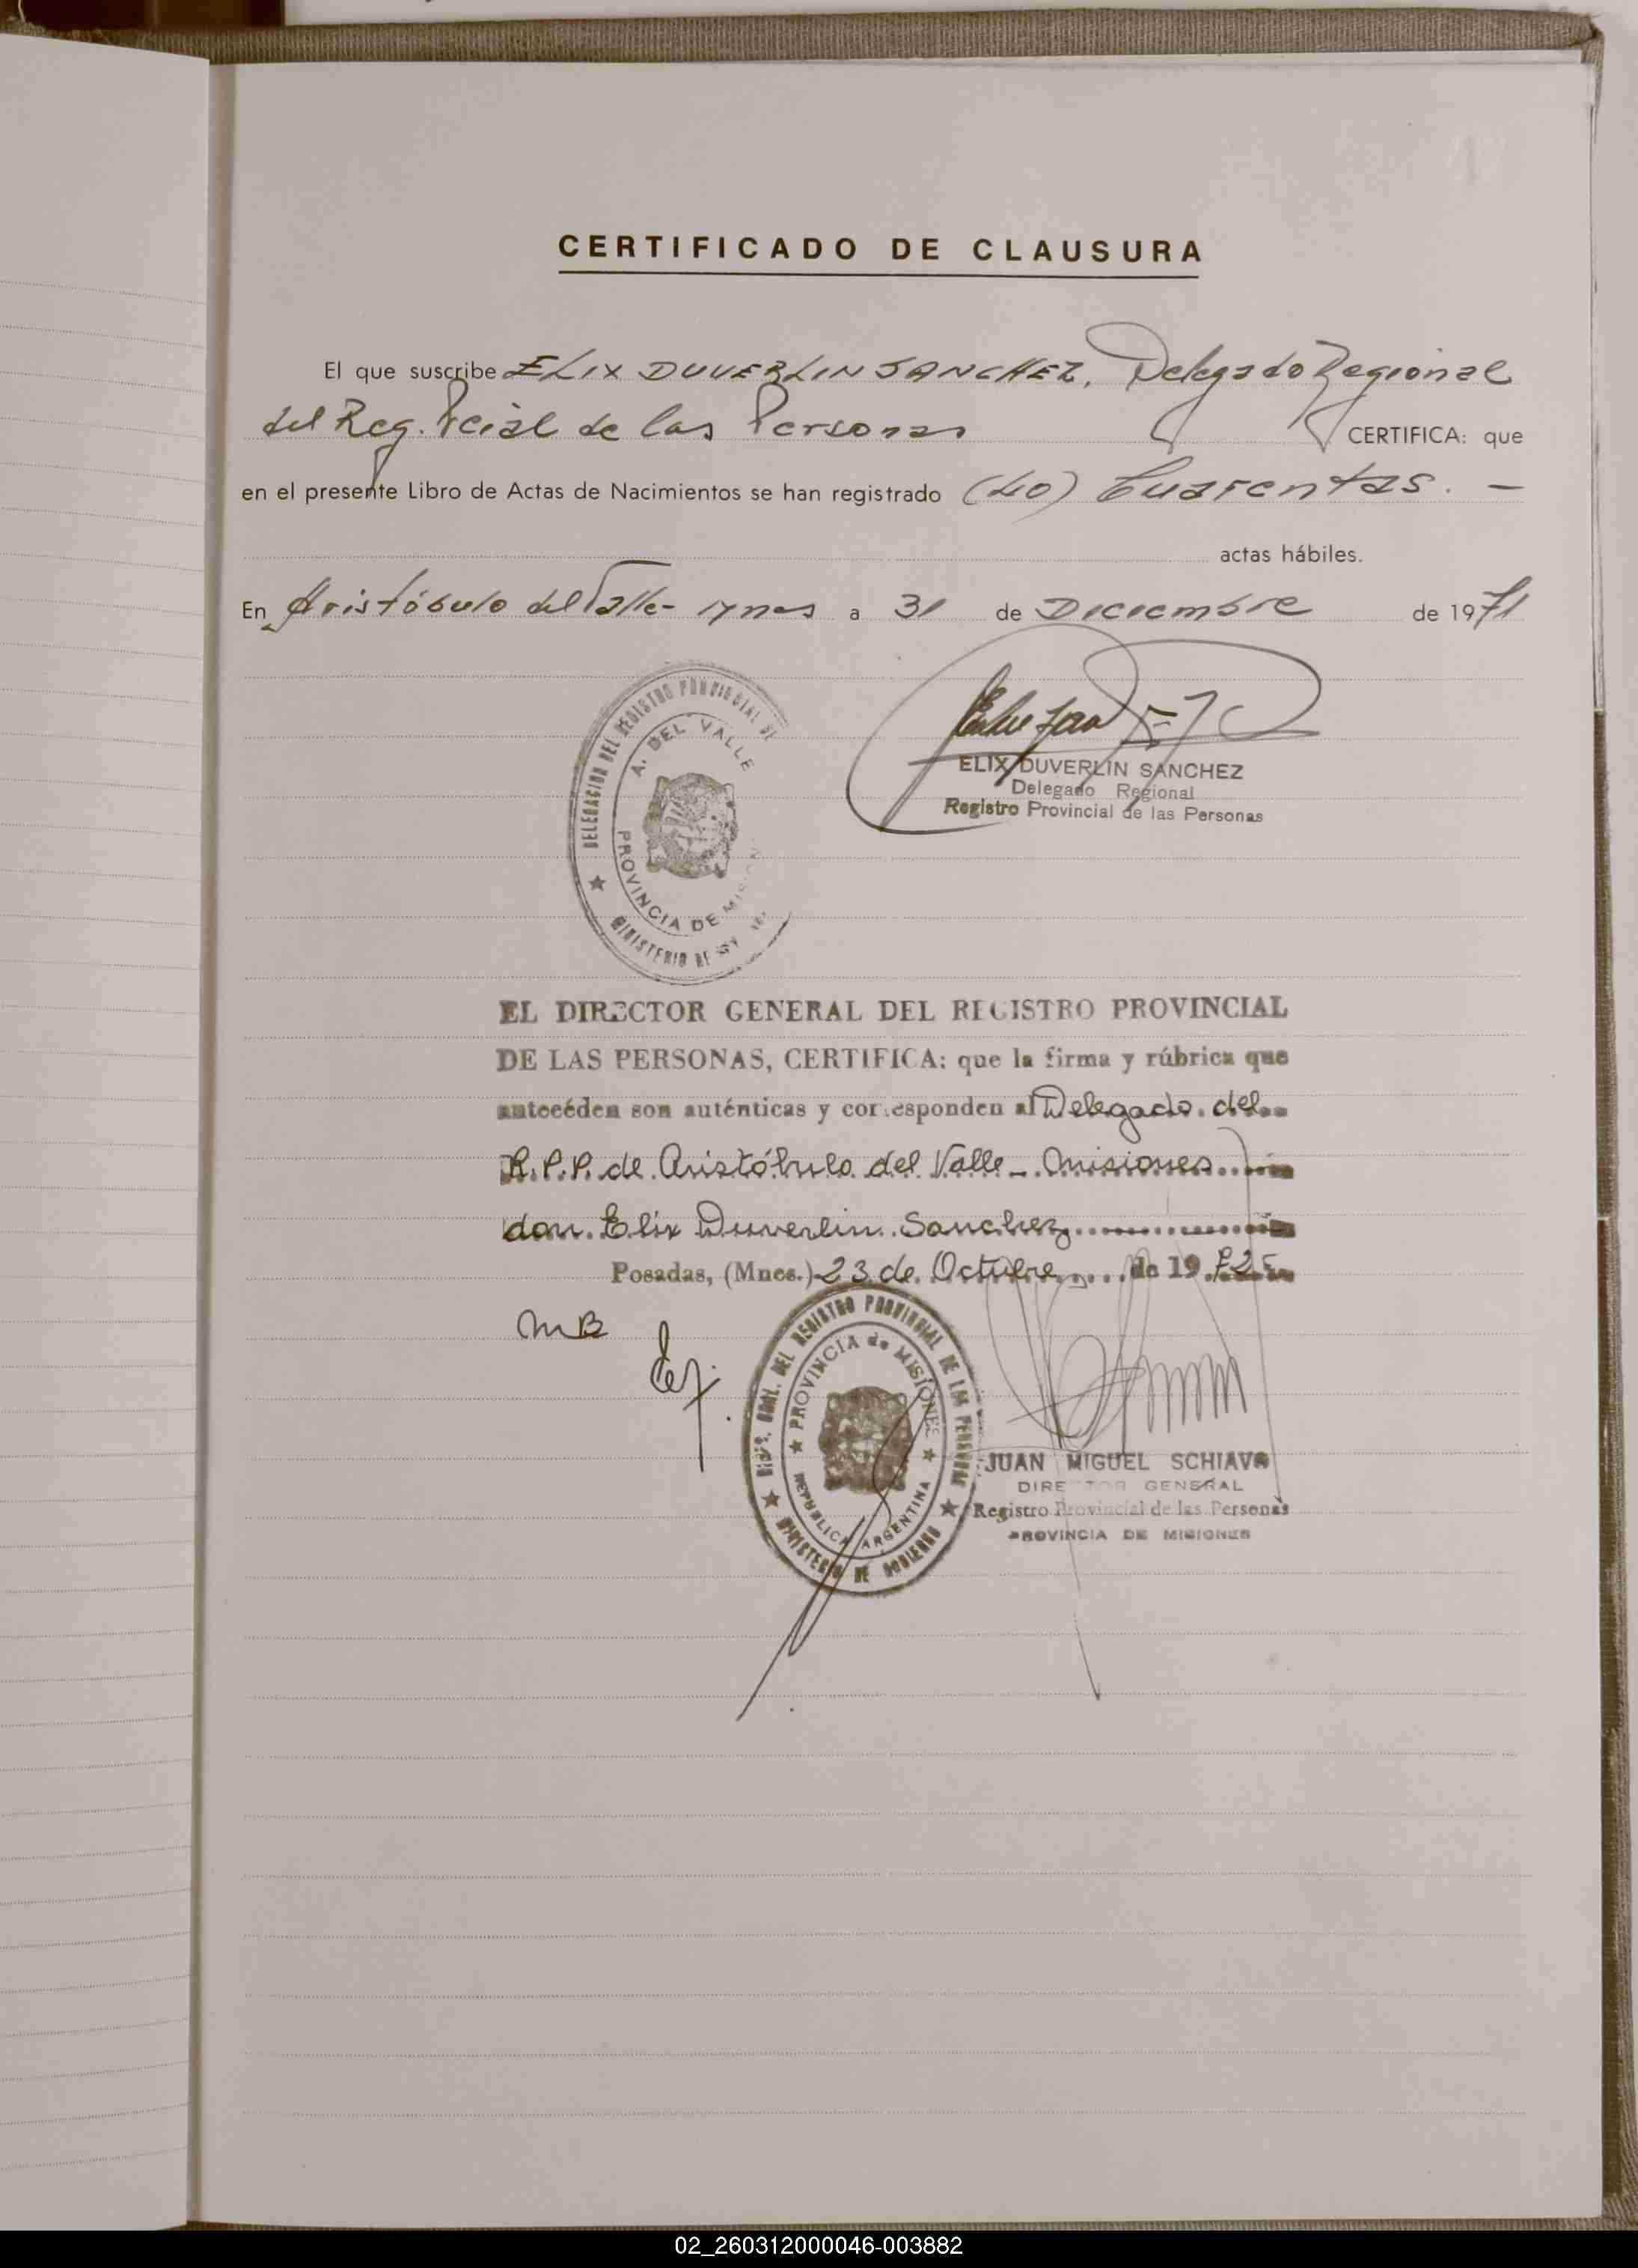 CERTIFICADO DE CLAUSURA
El que suscribe ELIX DUVERLIN SANCHEZ, Delegado Regional
del Reg. Pcial de las Personas CERTIFICA: que
en el presente Libro de Actas de Nacimientos se han registrado (40) Cuarentas. —
actas hábiles.
En Aristóbulo del Valle - Mnes a 31 de Diciembre de 1971
DELEGACION DEL REGISTRO PROVINCIAL DE
A. DEL VALLE
PROVINCIA DE
MINISTERIO DE
ELIX DUVERLIN SANCHEZ
Delegado Regional
Registro Provincial de las Personas
EL DIRECTOR GENERAL DEL REGISTRO PROVINCIAL
DE LAS PERSONAS, CERTIFICA: que la firma y rúbrica que
anteceden son auténticas y corresponden al Delegado del
R.P.P. de Aristóbulo del Valle - Misiones
don Elix Duverlin Sanchez
Posadas, (Mnes.) 23 de Octubre de 19 72
MB
DIR. GRAL. DEL REGISTRO PROVINCIAL DE LAS PERSONAS
PROVINCIA de MISIONES
REPUBLICA ARGENTINA
MINISTERIO DE GOBIERNO
JUAN MIGUEL SCHIAVO
DIRECTOR GENERAL
Registro Provincial de las Personas
PROVINCIA DE MISIONES
02_260312000046-003882